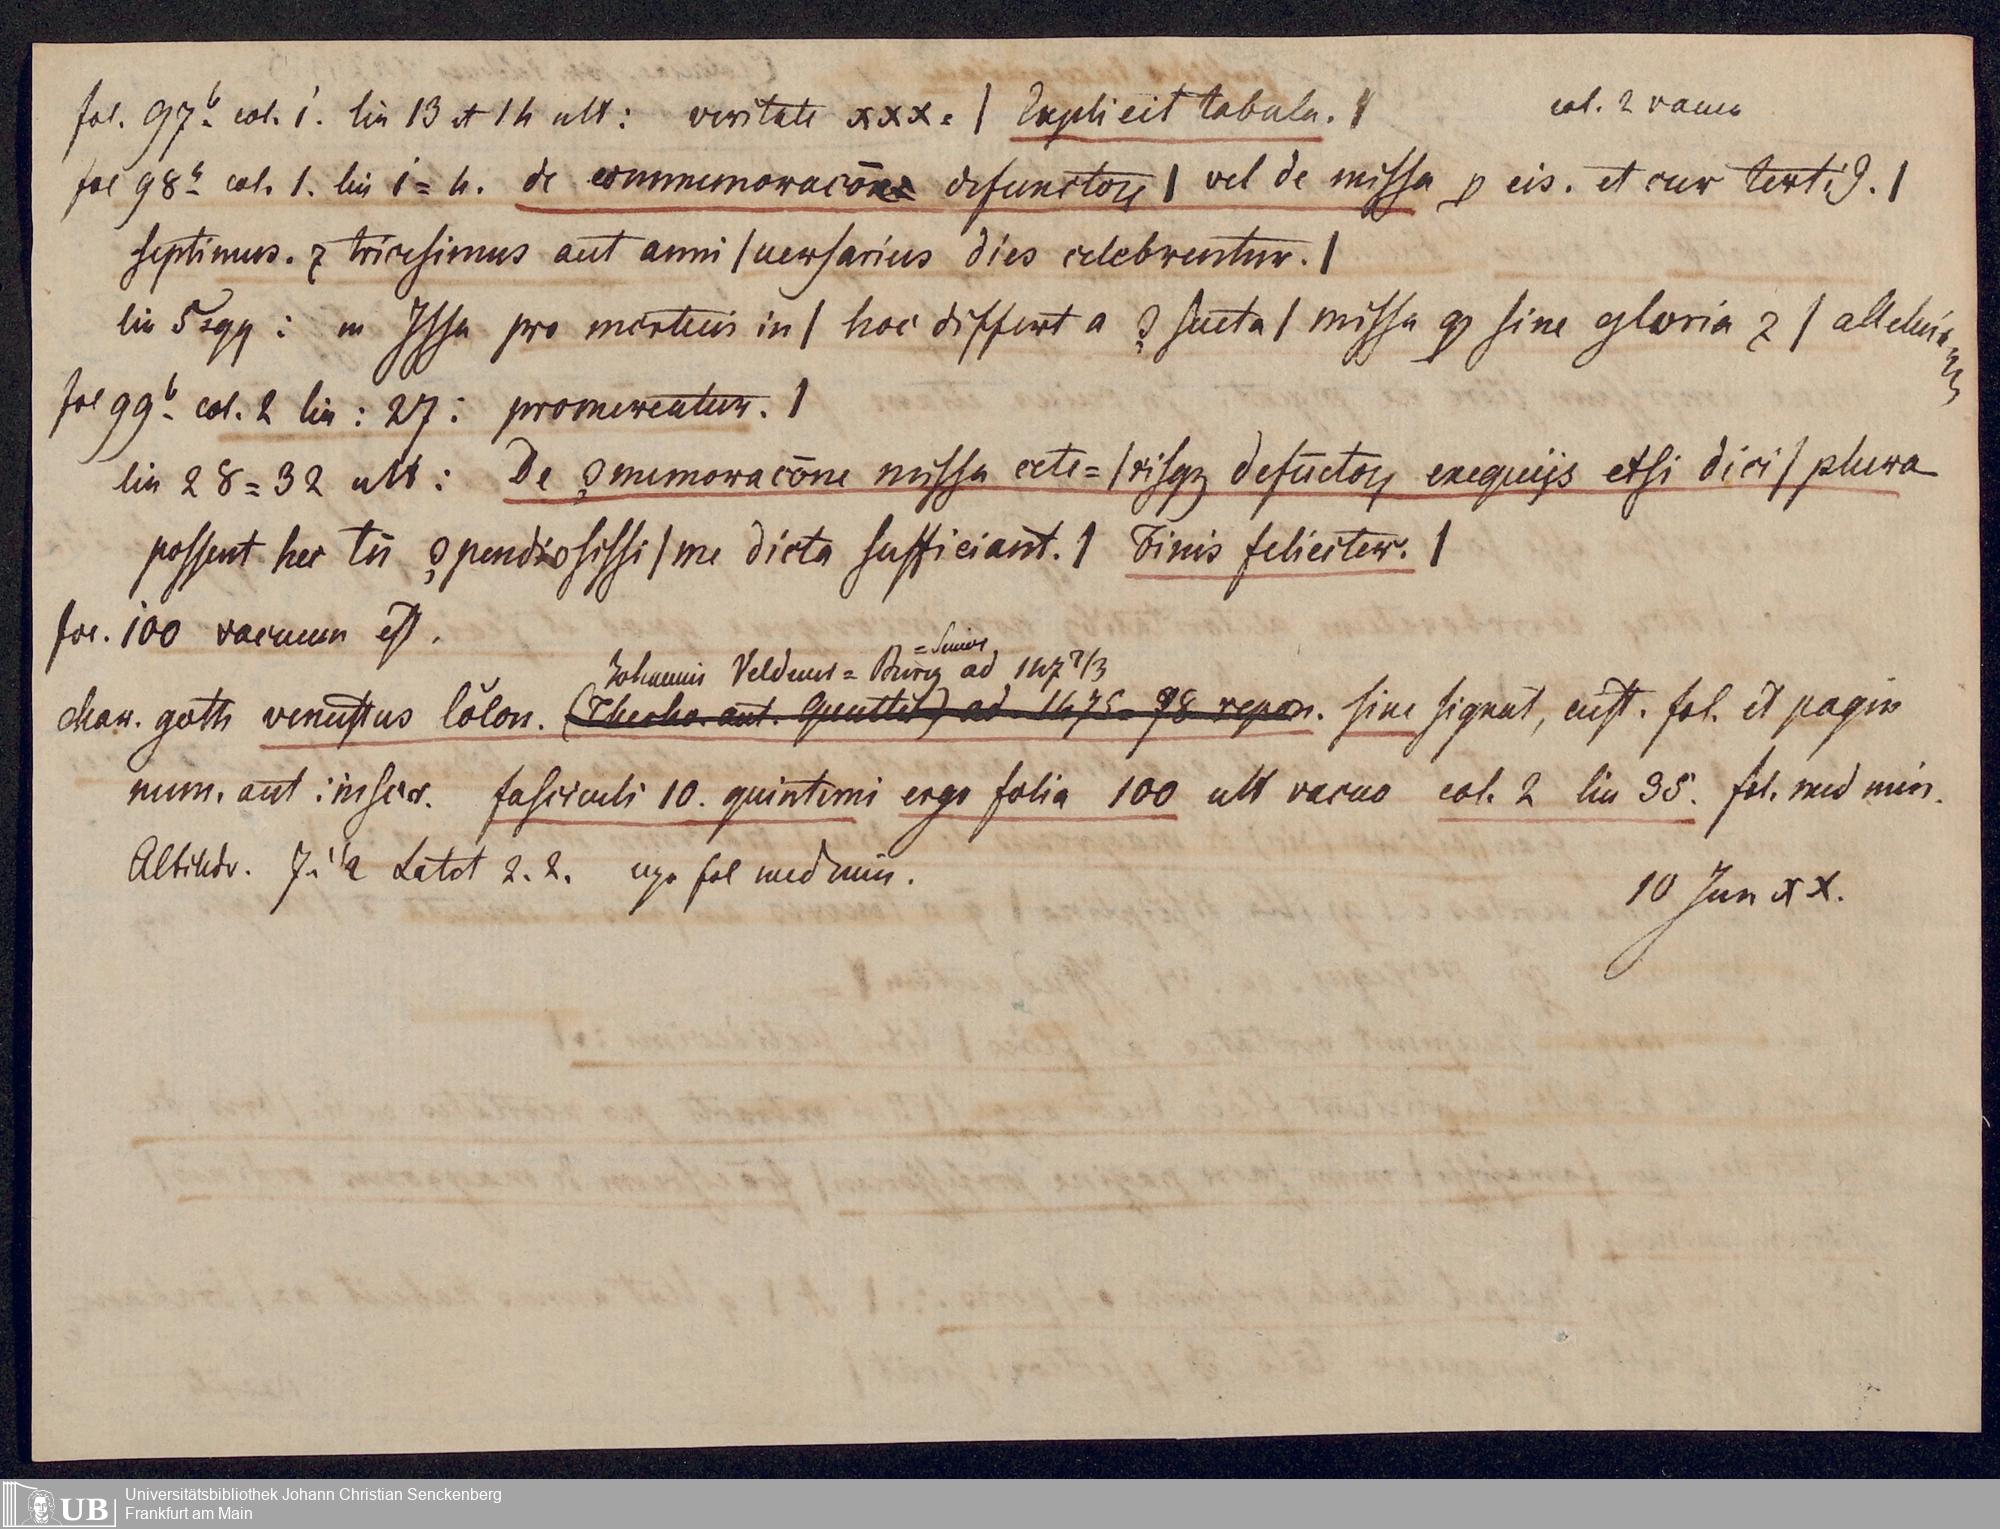 fol. 97b col. 1. lin 13 et 14 ult: veritate xxx = | Explicit tabula. | col. 2 vacua
fol 98a col. 1. lin 1 = 4. de commemoracōne defunctoꝝ | vel de missa ꝓ eis. et cur tertiꝰ. |
septimus. ⁊ tricesimus aut anni | uersarius dies celebrentur. |
lin 5 sqq: Issa pro mortuis in | hoc differt a ꝯsueta | missa ꝙ sine gloria ⁊ | alleluia
fol 99b col. 2 lin: 27: promereatur. |
lin 28 = 32 ult: De ꝯmemoracōne missa cete= | risqꝫ defūctoꝝ exequijs etsi dici | plura
possent hec tn̄ ꝯpendiosissi | me dicta sufficiant. | Finis feliciter. |
fol. 100 vacuum est.
= Senior
Johannis Veldener = Burg ad 147 7/3
char. goth venustus Cōlon. ad 1475 = 78 repon. sine signat, cust. fol. et pagin
num. aut inscr. fasciculi 10. quinterni ergo folia 100 ult vacuo col. 2 lin 35. fol. med min.
Altitudr. 7. Latet 2. 2. ergo fol med min.
10 Jun xx.
UB Universitätsbibliothek Johann Christian Senckenberg
Frankfurt am Main